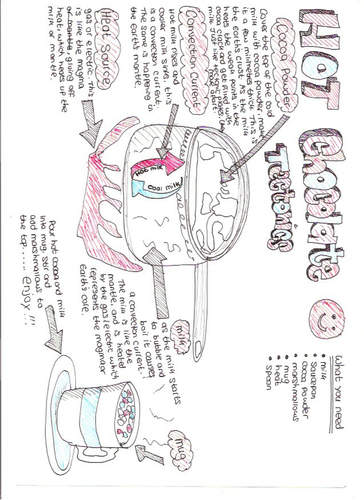 HOT Chocolate
Tectonics
What you need
• milk
• saucepan
• cocoa powder
• marshmallows
• mug
• heat
• spoon
Cocoa Powder
Cover the top of the cold
milk with cocoa powder, make
it a few millimetres thick. This is
the earth's crust. As the milk
heats, the weak points in the
cocoa crack and get filled with
milk just like a
Convection Current
Hot milk rises and
cooler milk sinks, this is
a convection current.
This is happening in
the Earth's mantle.
Heat Source
gas or electric. This
is like the magma
or
heat, which heats up the
milk or mantle.
Hot milk
Cool milk
milk
as the milk starts
to bubble and
boil it causes
a convection current.
The milk is like the
mantle, and is heated
by the gas/electric which
represents the magma or
Earth's core.
mug
Pour hot cocoa and milk
into mug, stir and
add marshmallows to
the top..... enjoy!!!